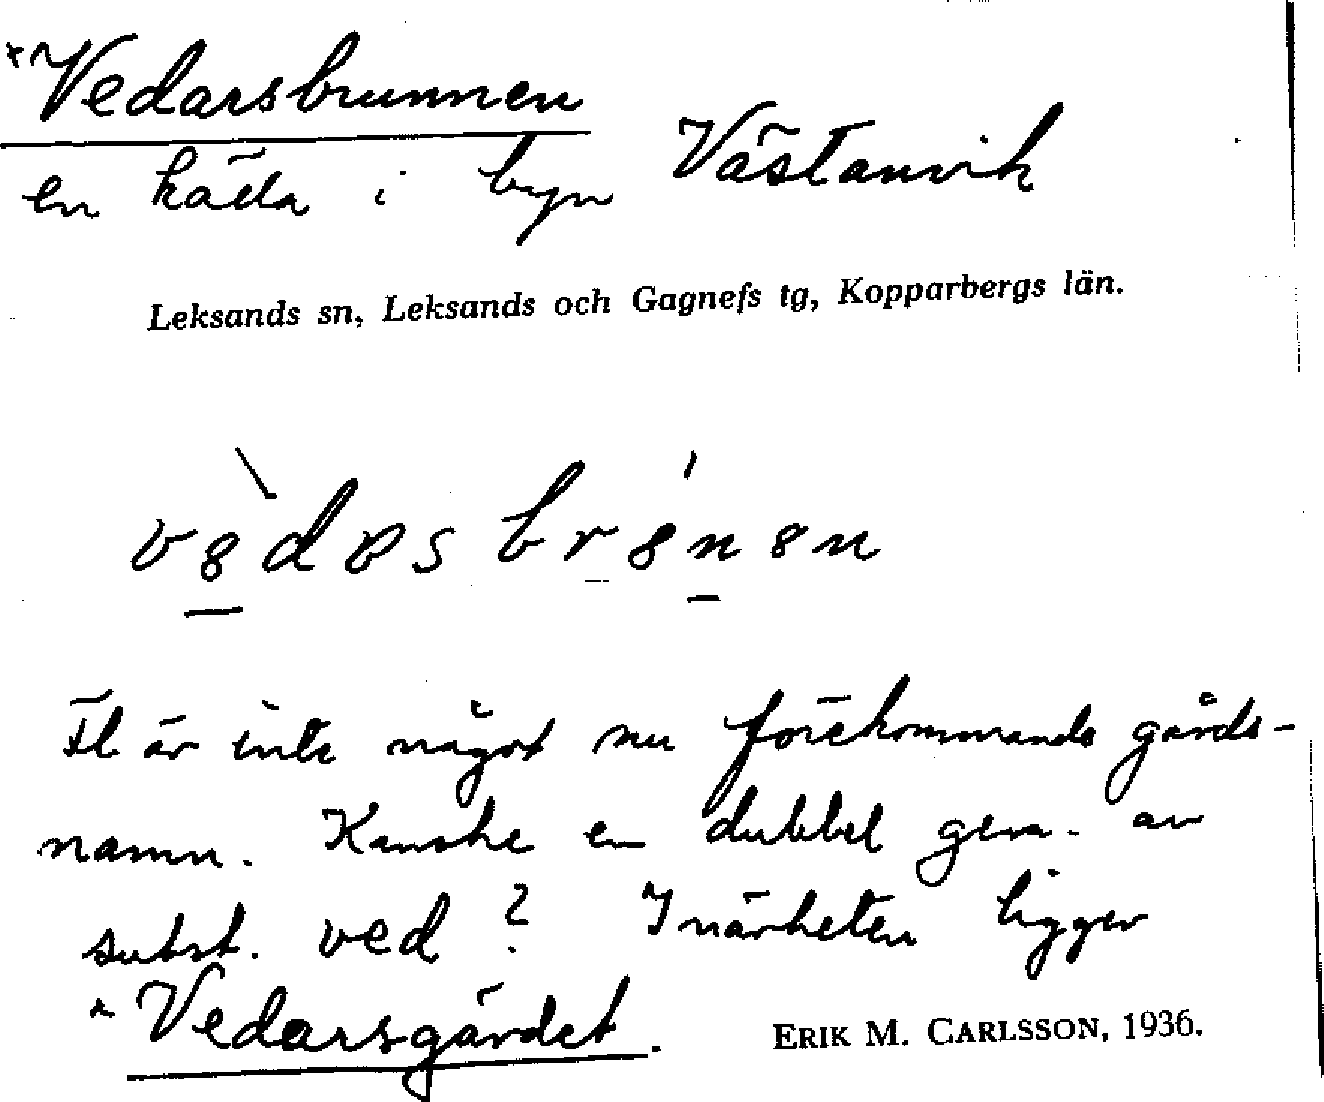 Vedarsbrunnen
en källa i byn Västanvik
Leksands sn, Leksands och Gagnefs tg, Kopparbergs län.
Fl är inte något nu förekommande gårds-
namn. Kanske en dubbel gen. av
subst. ved? I närheten ligger
Vedarsgärdet.
ERIK M. CARLSSON, 1936.